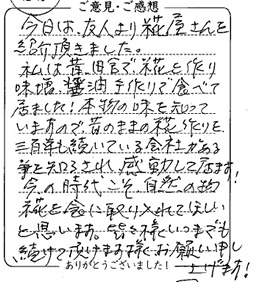 ご意見・ご感想
今日は、友人より糀屋さんを
紹介頂きました。
私は昔、田舎で、糀を作り
味噌、醤油手作りで食べて
居ました！本物の味を知って
いますので、昔のままの糀作りを
三百年も続いている会社がある
事を知らされ、感動して居ます！
今の時代こそ自然の物
糀を食に取り入れてほしい
と思います。皆々様いつまでも
続けて頂けます様にお願い申し
上げます！
ありがとうございました！